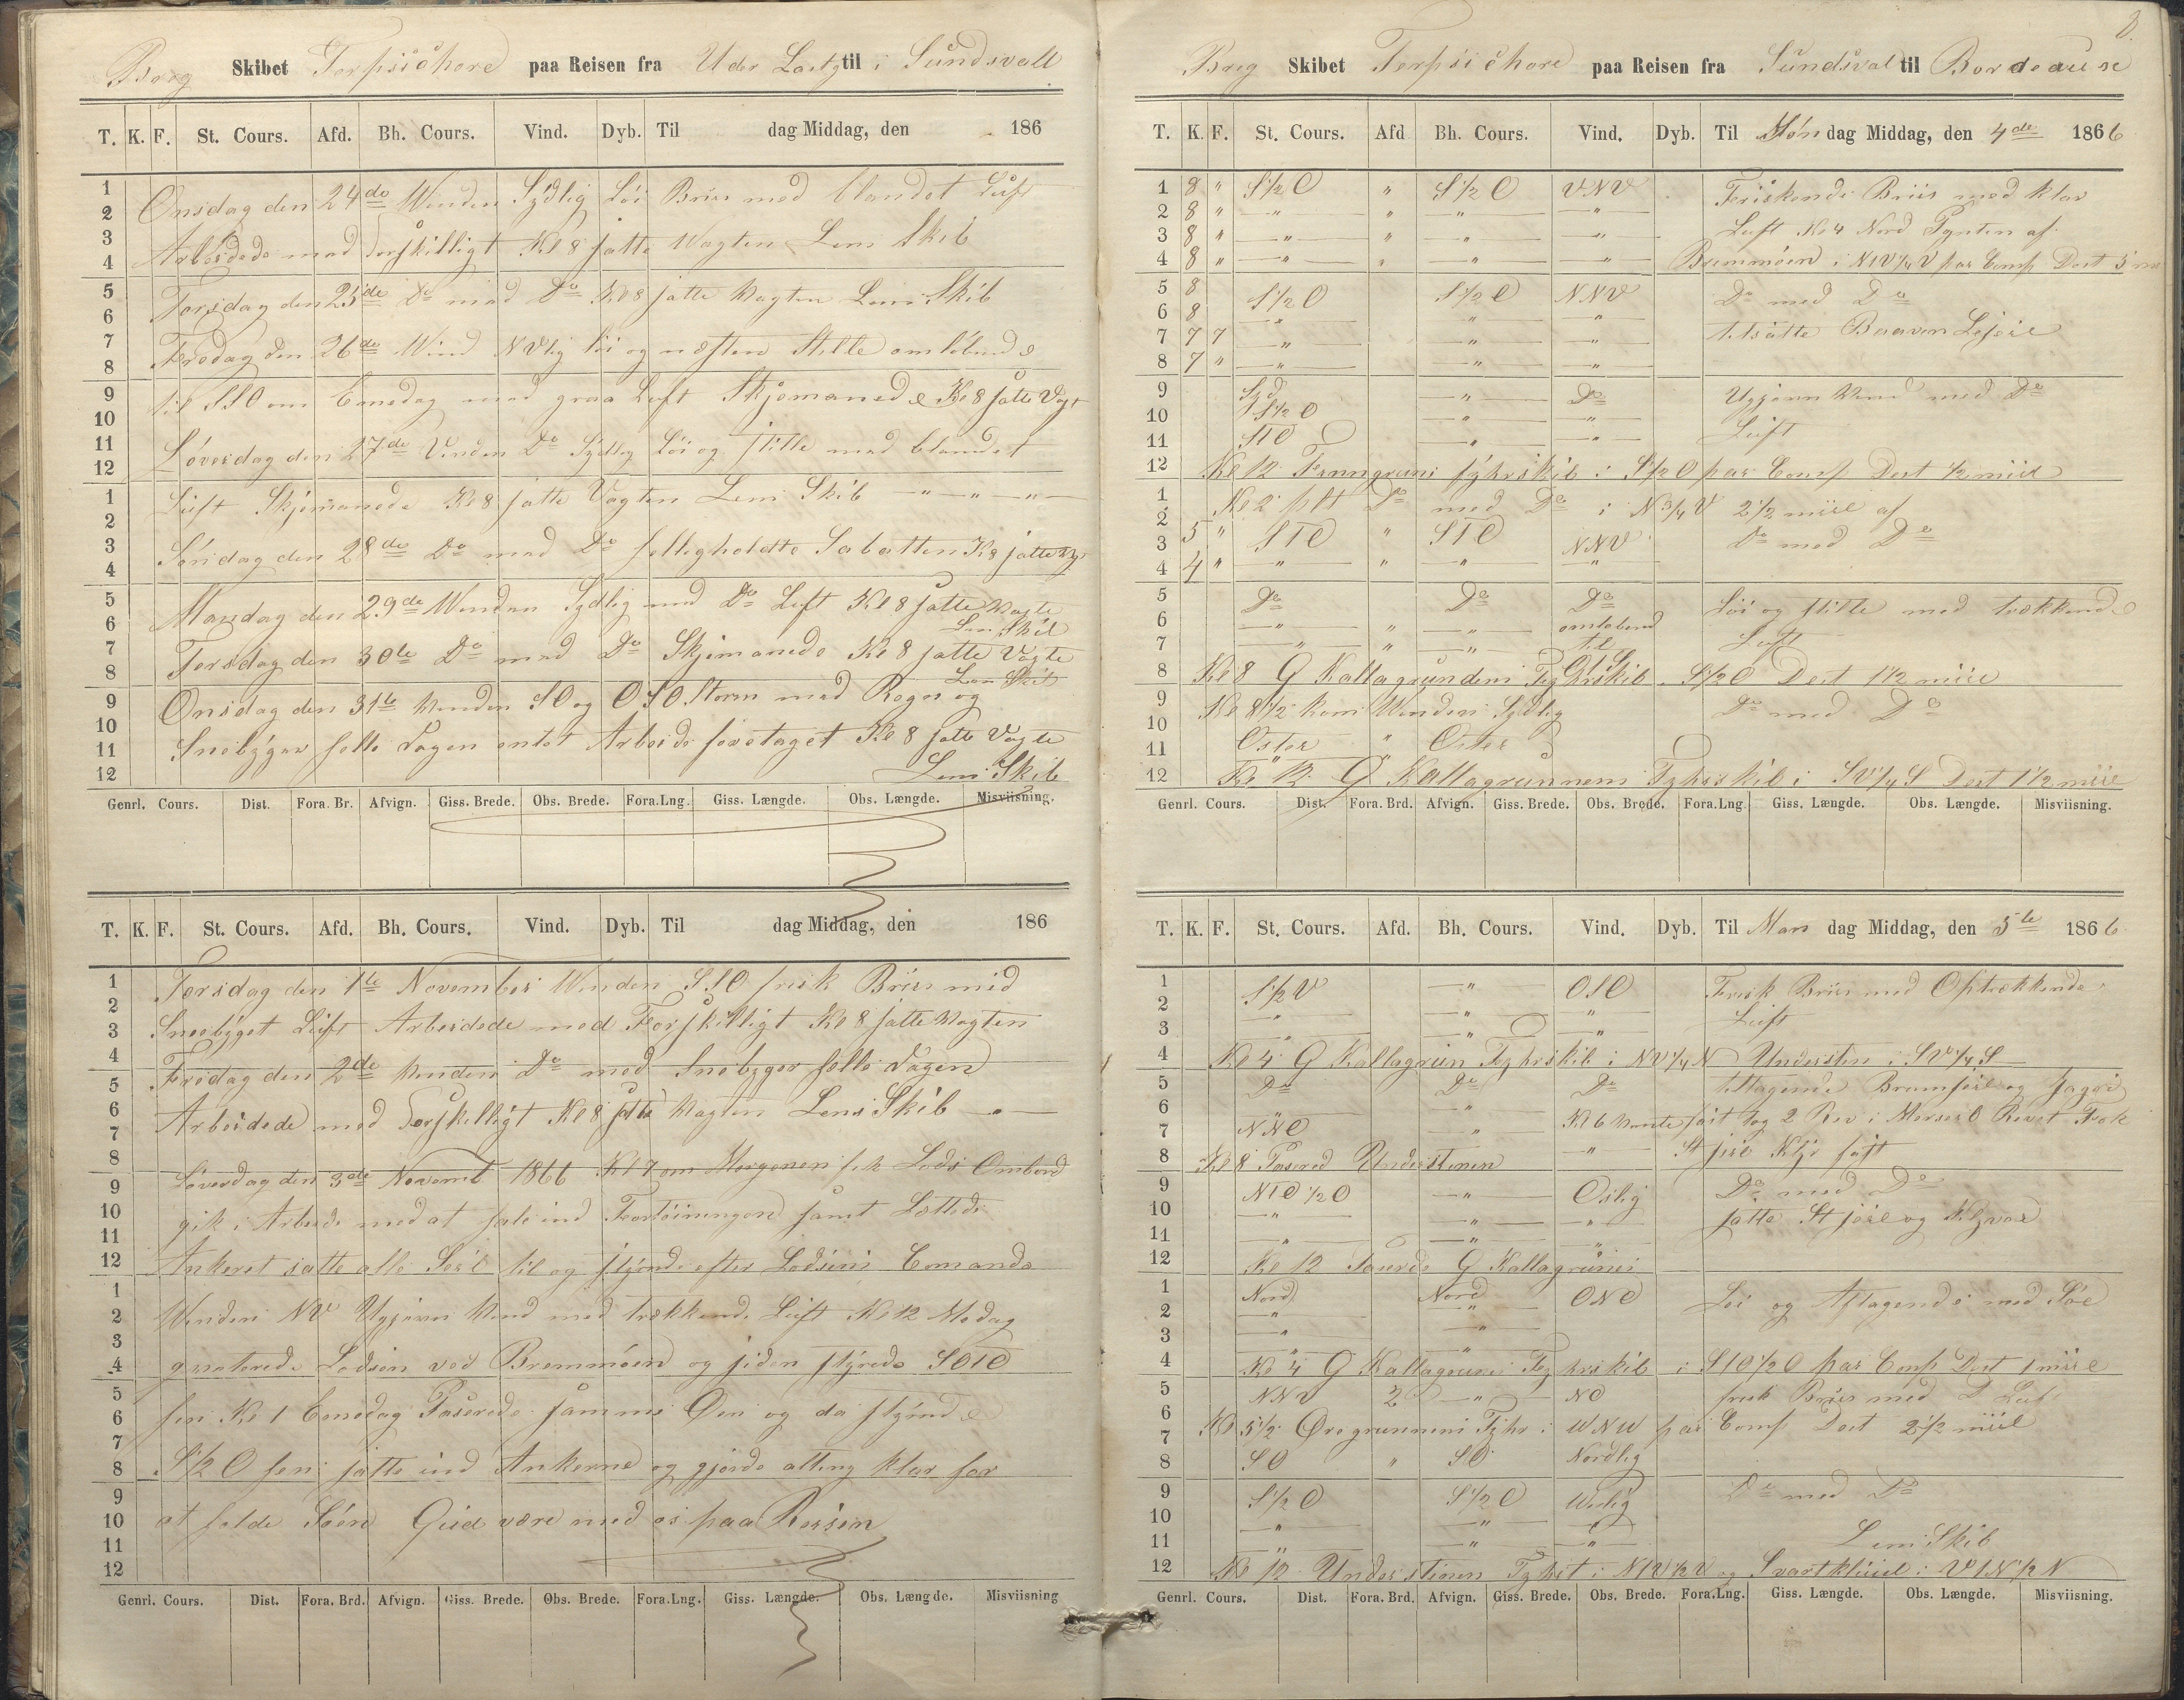 Brig Skibet Terpsichore paa Reisen fra Under Lastg til i Sundsvall
T. K. F. St. Cours. Afd. Bh. Cours. Vind. Dyb. Til dag Middag, den 186
1 2 3 4 5 6 7 8 9 10 11 12
1 2 3 4 5 6 7 8 9 10 11 12
Onsdag den 24de Winden Sydlig Løi Briis med blandet Luft
Arbeidede med Forskilligt Kl 8 satte Wagten Lens Skib
Torsdag den 25de Do med Do Kl 8 satte Wagten Lens Skib
Fredag den 26de Wind NVlig løi og næsten Stille omløbende
til SSO om Emedag med graa Luft Skjemanede Kl 8 satte Vagt
Løverdag den 27de Vinden Do Sydlig Løi og stille med blandet
Luft Skjemanede Kl 8 satte Vagten Lens Skib
Søndag den 28de Do med Do helligholdte Sabatten Kl 8 satte Vagt
Mandag den 29de Winden Sydlig med Do Luft Kl 8 satte Vagte
Lens Skib
Tirsdag den 30te Do med Do Skjemanede Kl 8 satte Vagte
Lens Skib
Onsdag den 31te Vinden SO og OSO Storm med Regn og
Snebyger hele Dagen entet Arbeide foretaget Kl 8 satte Vagte
Lens Skib
Genrl. Cours. Dist. Fora. Br. Afvign. Giss. Brede. Obs. Brede. Fora.Lng. Giss. Længde. Obs. Længde. Misviisning.
T. K. F. St. Cours. Afd. Bh. Cours. Vind. Dyb. Til dag Middag, den 186
1 2 3 4 5 6 7 8 9 10 11 12
1 2 3 4 5 6 7 8 9 10 11 12
Torsdag den 1te November Winden SSO frisk Briis med
Sneebyget Luft Arbeidede med Forskilligt Kl 8 satte Wagten
Fredag den 2de Vinden Do med Snebyger hele Dagen
Arbeidede med Forskilligt Kl 8 satte Wagten Lens Skib
Løverdag den 3de Novemb 1866 Kl 7 om Morgenen fik Lods Ombord
gik i Arbeide med at hale ind Fortøiningerne samt Lettede
Ankeret satte alle Seil til og styrede efter Lodsens Comando
Winden NV Ugjevn Wind med trækkende Luft Kl 12 Medag
qviterede Lodsen ved Bremmøen og siden styrede SOtO
hen Kl 1 Emedag Paserede samme Øen og da styrede
S1/2O hen satte ind Ankerne og gjorde alting klar for
at holde Søen Gud være med os paa Reisen
Genrl. Cours. Dist. Fora. Brd. Afvign. Giss. Brede. Obs. Brede. Fora.Lng. Giss. Længde. Obs. Længde. Misviisning
8.
Brig Skibet Terpsichore paa Reisen fra Sundsval til Bordeause
T. K. F. St. Cours. Afd Bh. Cours. Vind. Dyb. Til Søn dag Middag, den 4de 1866
1 8 " S1/2O " S1/2O VNV Friskende Briis med klar
2 8 " " " " " Luft Kl 4 Nord Pynten af
3 8 " " " " "
4 8 " " " " " Bremmøen i NtV1/4V par Comp Dest 5 m
5 8 S1/2O S1/2O NNV Do med Do
6 8 " " "
7 7 7 " " " tilsatte Bramen Lejseil
8 7 " " " "
9 Syd " Do Ugjevn Wind med Do
10 S1/2O " " Luft
11 StO " "
12 Kl 12 Finngruns Fyhrskib i S1/2O par Comp Dest 1/2 miil
1 Kl 2 plt Do med Do i N3/4V 2 1/2 miil af
2
3 5 " StO " StO NNV Do med Do
4 4 " " " " "
5 Do Do Do Løi og stille med trækkende
6 " " " omløbend Luft
7 " " " til
8 Kl 8 G Kallagrundens Fyhrskib S1/2O Dest 1 1/2 miil
9 Kl 8 1/2 kom Winden Sydlig Do med Do
10
11 Oster " Oster
12 Kl 12 G Kallagrunnens Fyhrskib i SV1/4S Dest 1 1/2 miil
Genrl. Cours. Dist. Fora. Brd. Afvign. Giss. Brede. Obs. Brede. Fora.Lng Giss. Længde. Obs. Længde. Misviisning.
T. K. F. St. Cours. Afd. Bh. Cours. Vind. Dyb. Til Man dag Middag, den 5te 1866
1 S1/2V " OSO Frisk Briis med Optrækkende
2 " " " Luft
3 " " "
4 Kl 4 G Kallagrun Fyhrskib i NV1/4N Understen i SV1/4S
5 Do Do Do tiltagende Bramseil og Jager
6 " Kl 6 Wente tog 2 Rev i Merseil Revet Fok
7 NNO "
8 Kl 8 Paserede Understenen " St seil Klyv fast
9 NtO1/2O " Oslig Do med Do
10 " " " satte St seil og Klyver
11 " " "
12 Kl 12 G Kallagruns
1 Nord Nord ONO Løi og Aftagende med Søe
2 " "
3 " "
4 Kl 4 G Kallagruns Fyhrskib i StO1/2O par Comp Dest 1 miil
5 NNV 2 " NO frisk Briis med D Luft
6 Kl 5 1/2 Øregrunnens Fyhr i WNW par Comp Dest 2 1/2 miil
7
8 SO " SO Nordlig
9 S1/2O S1/2O Do med Do
10 " " "
11 " " " Lens Skib
12 Kl 12 Understenen Fyhrt i NtV1/2V og Svartkluid i VtN1/2N
Genrl. Cours. Dist. Fora. Brd. Afvign. Giss. Brede. Obs. Brede. Fora.Lng. Giss. Længde. Obs. Længde. Misviisning.